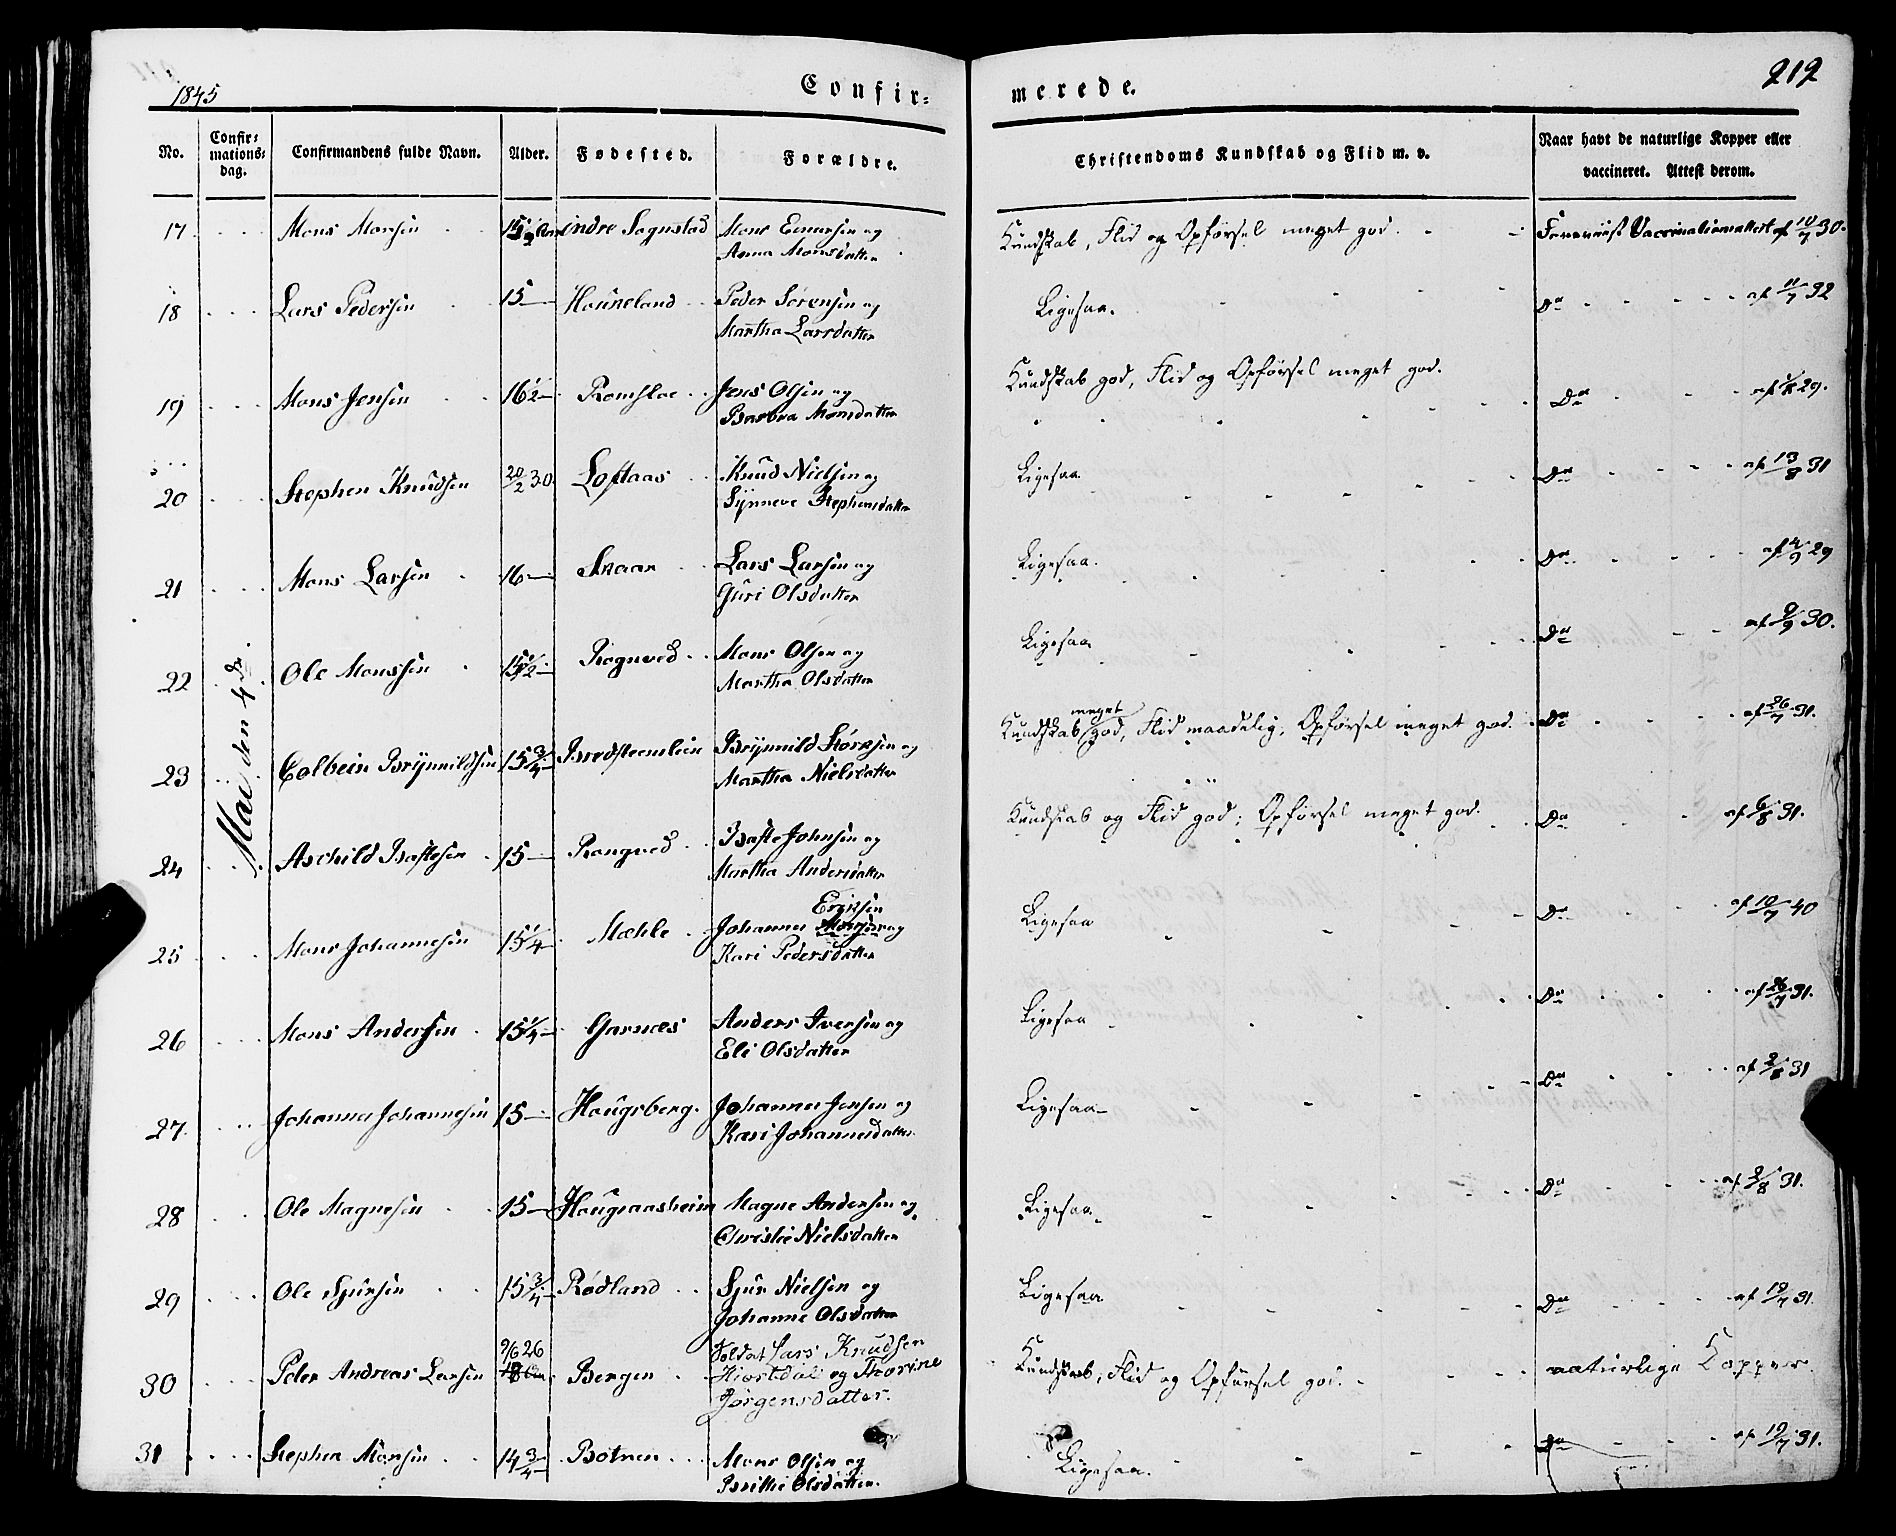 1845
Confir=
merede.
212
No. Confir=mations=dag. Confirmandens fulde Navn. Alder. Fødested. Forældre. Christendoms Kundskab og Flid m. v. Naar havt de naturlige Kopper eller vaccineret. Attest derom.
Mai den 4de
17 Mons Monsen indre Sognstad Mons og
Anna Monsdatter
Kundskab, Flid og Opførsel meget god. Foreviist Vaccinationsattest af 30.
18 Lars Pedersen 15 Hauneland Peder Sørensen og
Martha Larsdatter
Ligesaa. Do af 11/7 32
19 Mons Jensen 16 1/2 Romsloe Jens Olsen og
Barbra Monsdatter
Kundskab god, Flid og Opførsel meget god. Do af 29.
20 Stephen Knudsen 20/2 30 Loftaas Knud Nielsen og
Synneve Stephensdatter
Ligesaa Do af 13/8 31
21 Mons Larsen 16 Skaar Lars Larsen og
Guri Olsdatter
Ligesaa. Do af 4/9 29
22 Ole Monssen 15 1/2 Rognved Mons Olsen og
Martha Olsdatter
Ligesaa Do af 9/9 30.
23 Colbein Brynnildsen 15 3/4 Brynnild og
Martha Nielsdatter
meget
Kundskab god, Flid maadelig, Opførsel meget god. Do af 26/7 31.
24 Aschild Baftesen 15 Rongved Bafte Johnsen og
Martha Andersdatter
Kundskab og Flid god; Opførsel meget god. Do af 6/8 31.
25 Mons Johannesen 15 1/4 Mæhle Eriksen
Johannes og
Kari Pedersdatter
Ligesaa Do af 10/7 40
26 Mons Andersen 15 1/4 Garnæs Anders Iversen og
Eli Olsdatter
Ligesaa Do af 26/7 31.
27. Johannes Johannesen 15 Haugsberg. Johannes Jensen og
Kari Johannesdatter.
Ligesaa Do af 2/8 31
28 Ole Magnesen 15 Magne Andersen og
Christie Nielsdatter
Ligesaa Do af 2/8 31.
29 Ole Sjursen 15 3/4 Rødland Sjur Nielsen og
Johanne Olsdatter
Ligesaa Do af 19/7 31.
30 Peder Andreas Larsen 9/6 26 Bergen Soldat Lars Knudsen
Hjortdal og Thorine
Jørgensdatter.
Kundskab, Flid og Opførsel god. naturlige Kopper.
31 Stephen Monsen 14 3/4 Botnen Mons Olsen og
Brithe Olsdatter.
Ligesaa. Do af 19/7 31.